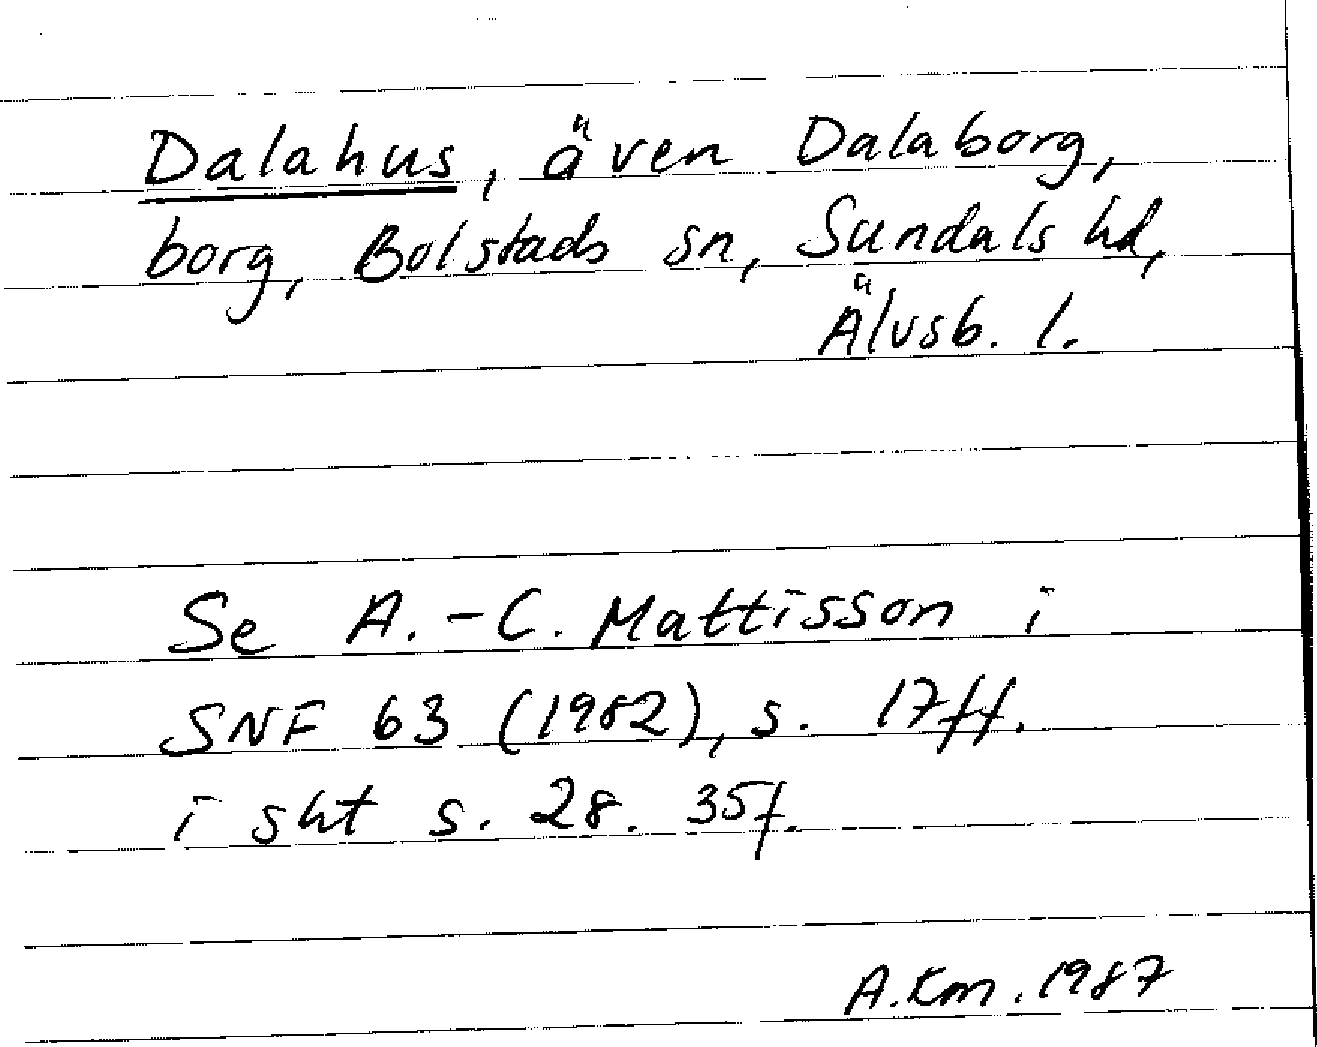 Dalahus, även Dalaborg,
borg, Bolstads sn, Sundals hd,
Älvsb. l.
Se A.-C. Mattisson i
SNF 63 (1982), s. 17ff.
i sht s. 28. 35f.
A.Km. 1987